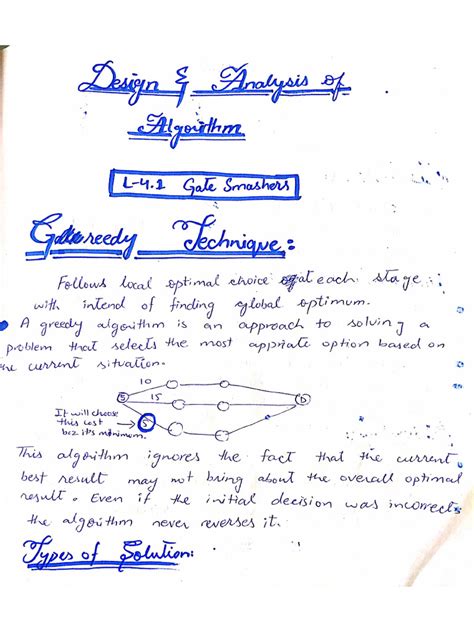 Design & Analysis of
Algorithm
L-4.1 Gate Smashers
Greedy Technique:
Follows local optimal choice at each stage
with intend of finding global optimum.
A greedy algorithm is an approach to solving a
problem that selects the most appriate option based on
the current situation.
10
S 15 D
It will choose
this cost 5
bcz it's minimum.
This algorithm ignores the fact that the current
best result may not bring about the overall optimal
result. Even if the initial decision was incorrect,
the algorithm never reverses it.
Types of Solution: